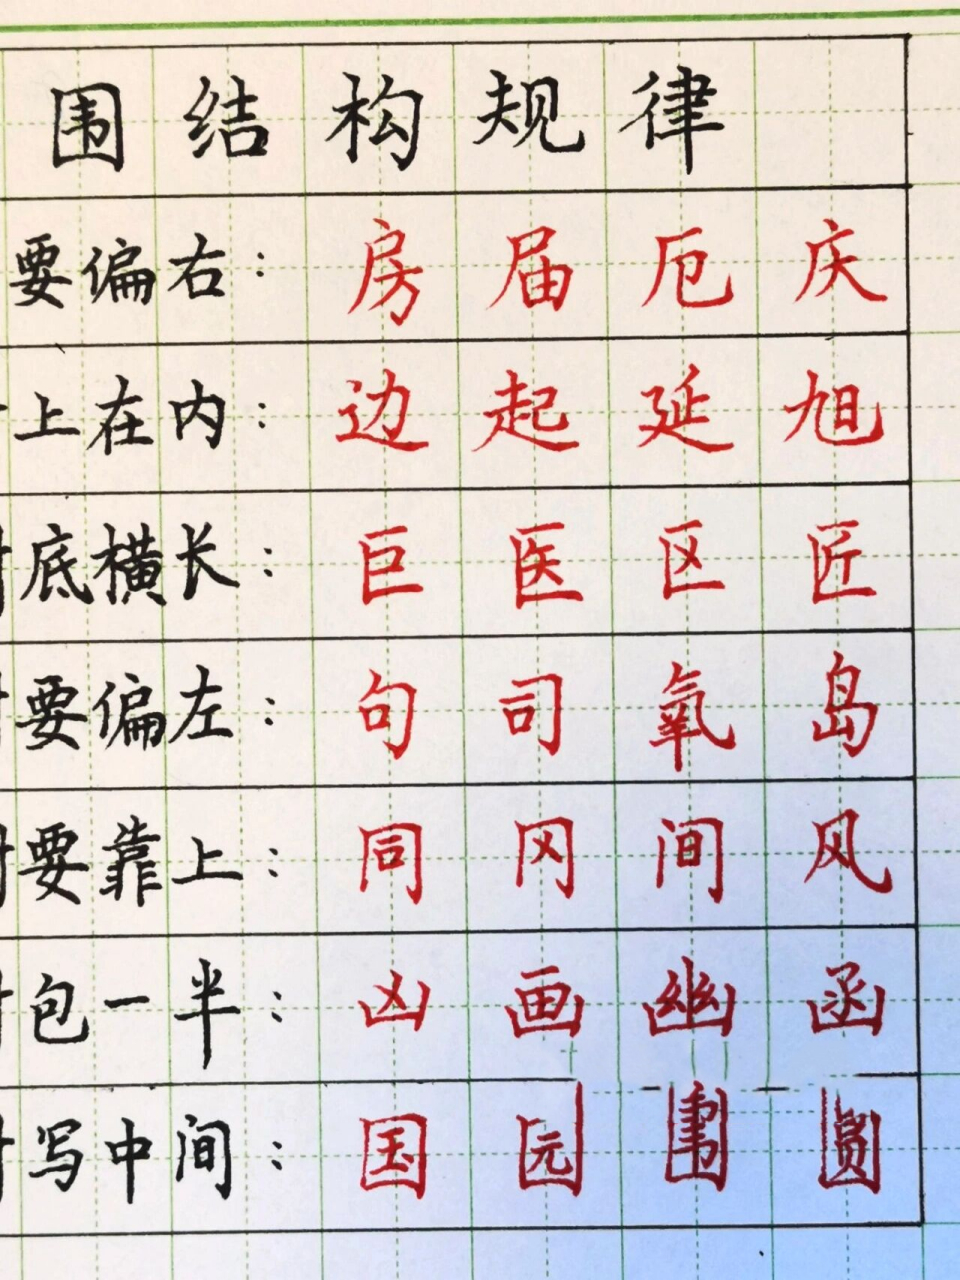 围结构规律
要偏右：房届厄庆
上在内：边起延旭
底横长：巨医区匠
要偏左：句司氧岛
要靠上：同冈间风
包一半：凶画幽函
写中间：国园